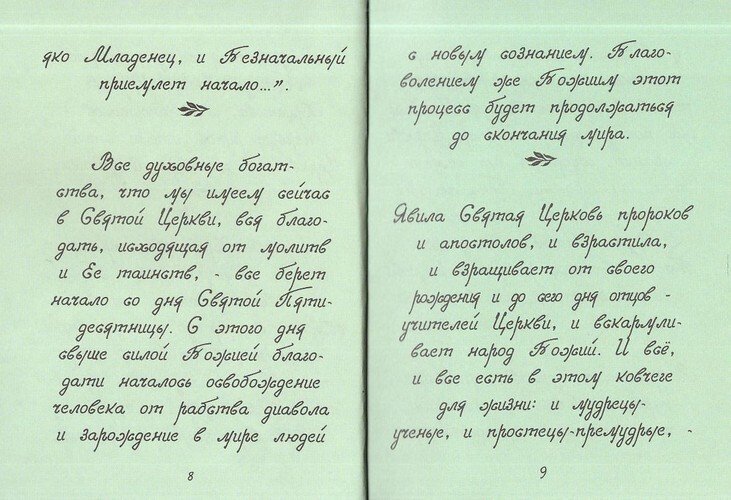 яко Младенец, и Безначальный
приемлет начало...".
Все духовные богат-
ства, что мы имеем сейчас
в Святой Церкви, вся благо-
дать, исходящая от молитв
и Ее таинств, - все берет
начало со дня Святой Пяти-
десятницы. С этого дня
свыше силой Божией благо-
дати началось освобождение
человека от рабства диавола
и зарождение в мире людей
8
с новым сознанием. Благо-
волением же Божиим этот
процесс будет продолжаться
до скончания мира.
Явила Святая Церковь пророков
и апостолов, и взрастила,
и взращивает от своего
рождения и до сего дня отцов -
учителей Церкви, и вскармли-
вает народ Божий. И всё,
и все есть в этом ковчеге
для жизни: и мудрецы-
ученые, и простецы-премудрые, -
9